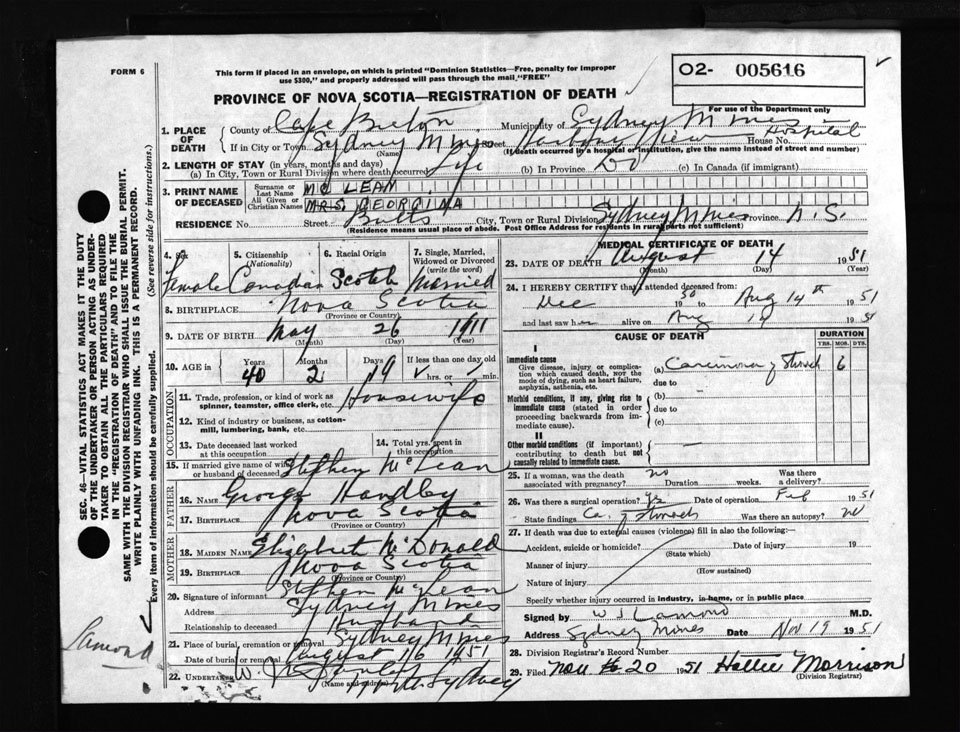 FORM 6
This form if placed in an envelope, on which is printed "Dominion Statistics—Free, penalty for improper
use $300," and properly addressed will pass through the mail, "FREE"
O2- 005616
For use of the Department only
PROVINCE OF NOVA SCOTIA—REGISTRATION OF DEATH
1. PLACE OF DEATH
County of Cape Breton Municipality of Sydney Mines
If in City or Town Sydney Mines (Name) Street Harbour View Hospital House No.
(If death occurred in a hospital or institution, give the name instead of street and number)
2. LENGTH OF STAY (in years, months and days)
(a) In City, Town or Rural Division where death occurred Life (b) In Province Do (c) In Canada (if immigrant)
3. PRINT NAME OF DECEASED
Surname or Last Name MC LEAN
All Given or Christian Names MRS. GEORGINA
RESIDENCE No. Street Butts City, Town or Rural Division Sydney Mines Province N.S.
(Residence means usual place of abode. Post Office Address for residents in rural parts not sufficient)
4. Sex Female
5. Citizenship (Nationality) Canadian
6. Racial Origin Scotch
7. Single, Married, Widowed or Divorced (write the word) Married
8. BIRTHPLACE Nova Scotia
(Province or Country)
9. DATE OF BIRTH May 26 1911
(Month) (Day) (Year)
10. AGE in Years 40 Months 2 Days 19 If less than one day old hrs. or min.
OCCUPATION
11. Trade, profession, or kind of work as spinner, teamster, office clerk, etc. Housewife
12. Kind of industry or business, as cotton-mill, lumbering, bank, etc.
13. Date deceased last worked at this occupation
14. Total yrs. spent in this occupation
15. If married give name of wife or husband of deceased Stephen McLean
FATHER
16. NAME George Handley
17. BIRTHPLACE Nova Scotia
(Province or Country)
MOTHER
18. MAIDEN NAME Elizabeth McDonald
19. BIRTHPLACE Nova Scotia
(Province or Country)
20. Signature of informant Stephen McLean
Address Sydney Mines
Relationship to deceased Husband
21. Place of burial, cremation or removal Sydney Mines
Date of burial or removal August 16 1951
22. UNDERTAKER W. J.
(Name and address) North Sydney
MEDICAL CERTIFICATE OF DEATH
23. DATE OF DEATH August 14 1951
(Month) (Day) (Year)
24. I HEREBY CERTIFY that I attended deceased from:
Dec 1950 to Aug 14th 1951
and last saw her alive on Aug 14 1951
CAUSE OF DEATH
DURATION
YRS. MOS. DYS.
I
Immediate cause
Give disease, injury or complication which caused death, not the mode of dying, such as heart failure, asphyxia, asthenia, etc.
(a) Carcinoma of Stomach 6
due to
Morbid conditions, if any, giving rise to immediate cause (stated in order proceeding backwards from immediate cause).
(b)
due to
(c)
II
Other morbid conditions (if important) contributing to death but not causally related to immediate cause.
25. If a woman, was the death associated with pregnancy? No Duration weeks. Was there a delivery?
26. Was there a surgical operation? Yes Date of operation Feb 1951
State findings Ca. of Stomach Was there an autopsy? No
27. If death was due to external causes (violence) fill in also the following:
Accident, suicide or homicide? Date of injury 19
(State which)
Manner of injury
(How sustained)
Nature of injury
Specify whether injury occurred in industry, in home, or in public place
Signed by W J Lamond M.D.
Address Sydney Mines Date Nov 19 1951
28. Division Registrar's Record Number
29. Filed Nov 20 1951 Hattie Morrison
(Division Registrar)
SEC. 46—VITAL STATISTICS ACT MAKES IT THE DUTY
OF THE UNDERTAKER OR PERSON ACTING AS UNDERTAKER TO OBTAIN ALL THE PARTICULARS REQUIRED
IN THE "REGISTRATION OF DEATH" AND TO FILE THE
SAME WITH THE DIVISION REGISTRAR WHO SHALL ISSUE THE BURIAL PERMIT.
WRITE PLAINLY WITH UNFADING INK. THIS IS A PERMANENT RECORD.
Every item of information should be carefully supplied. (See reverse side for instructions.)
Lamond